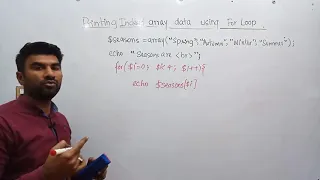 Printing Index array data using For Loop.
$seasons = array("Spring", "Autumn", "Winter", "Summer");
echo "Seasons are <br>";
for($i=0; $i<4; $i++){
echo $seasons[$i]